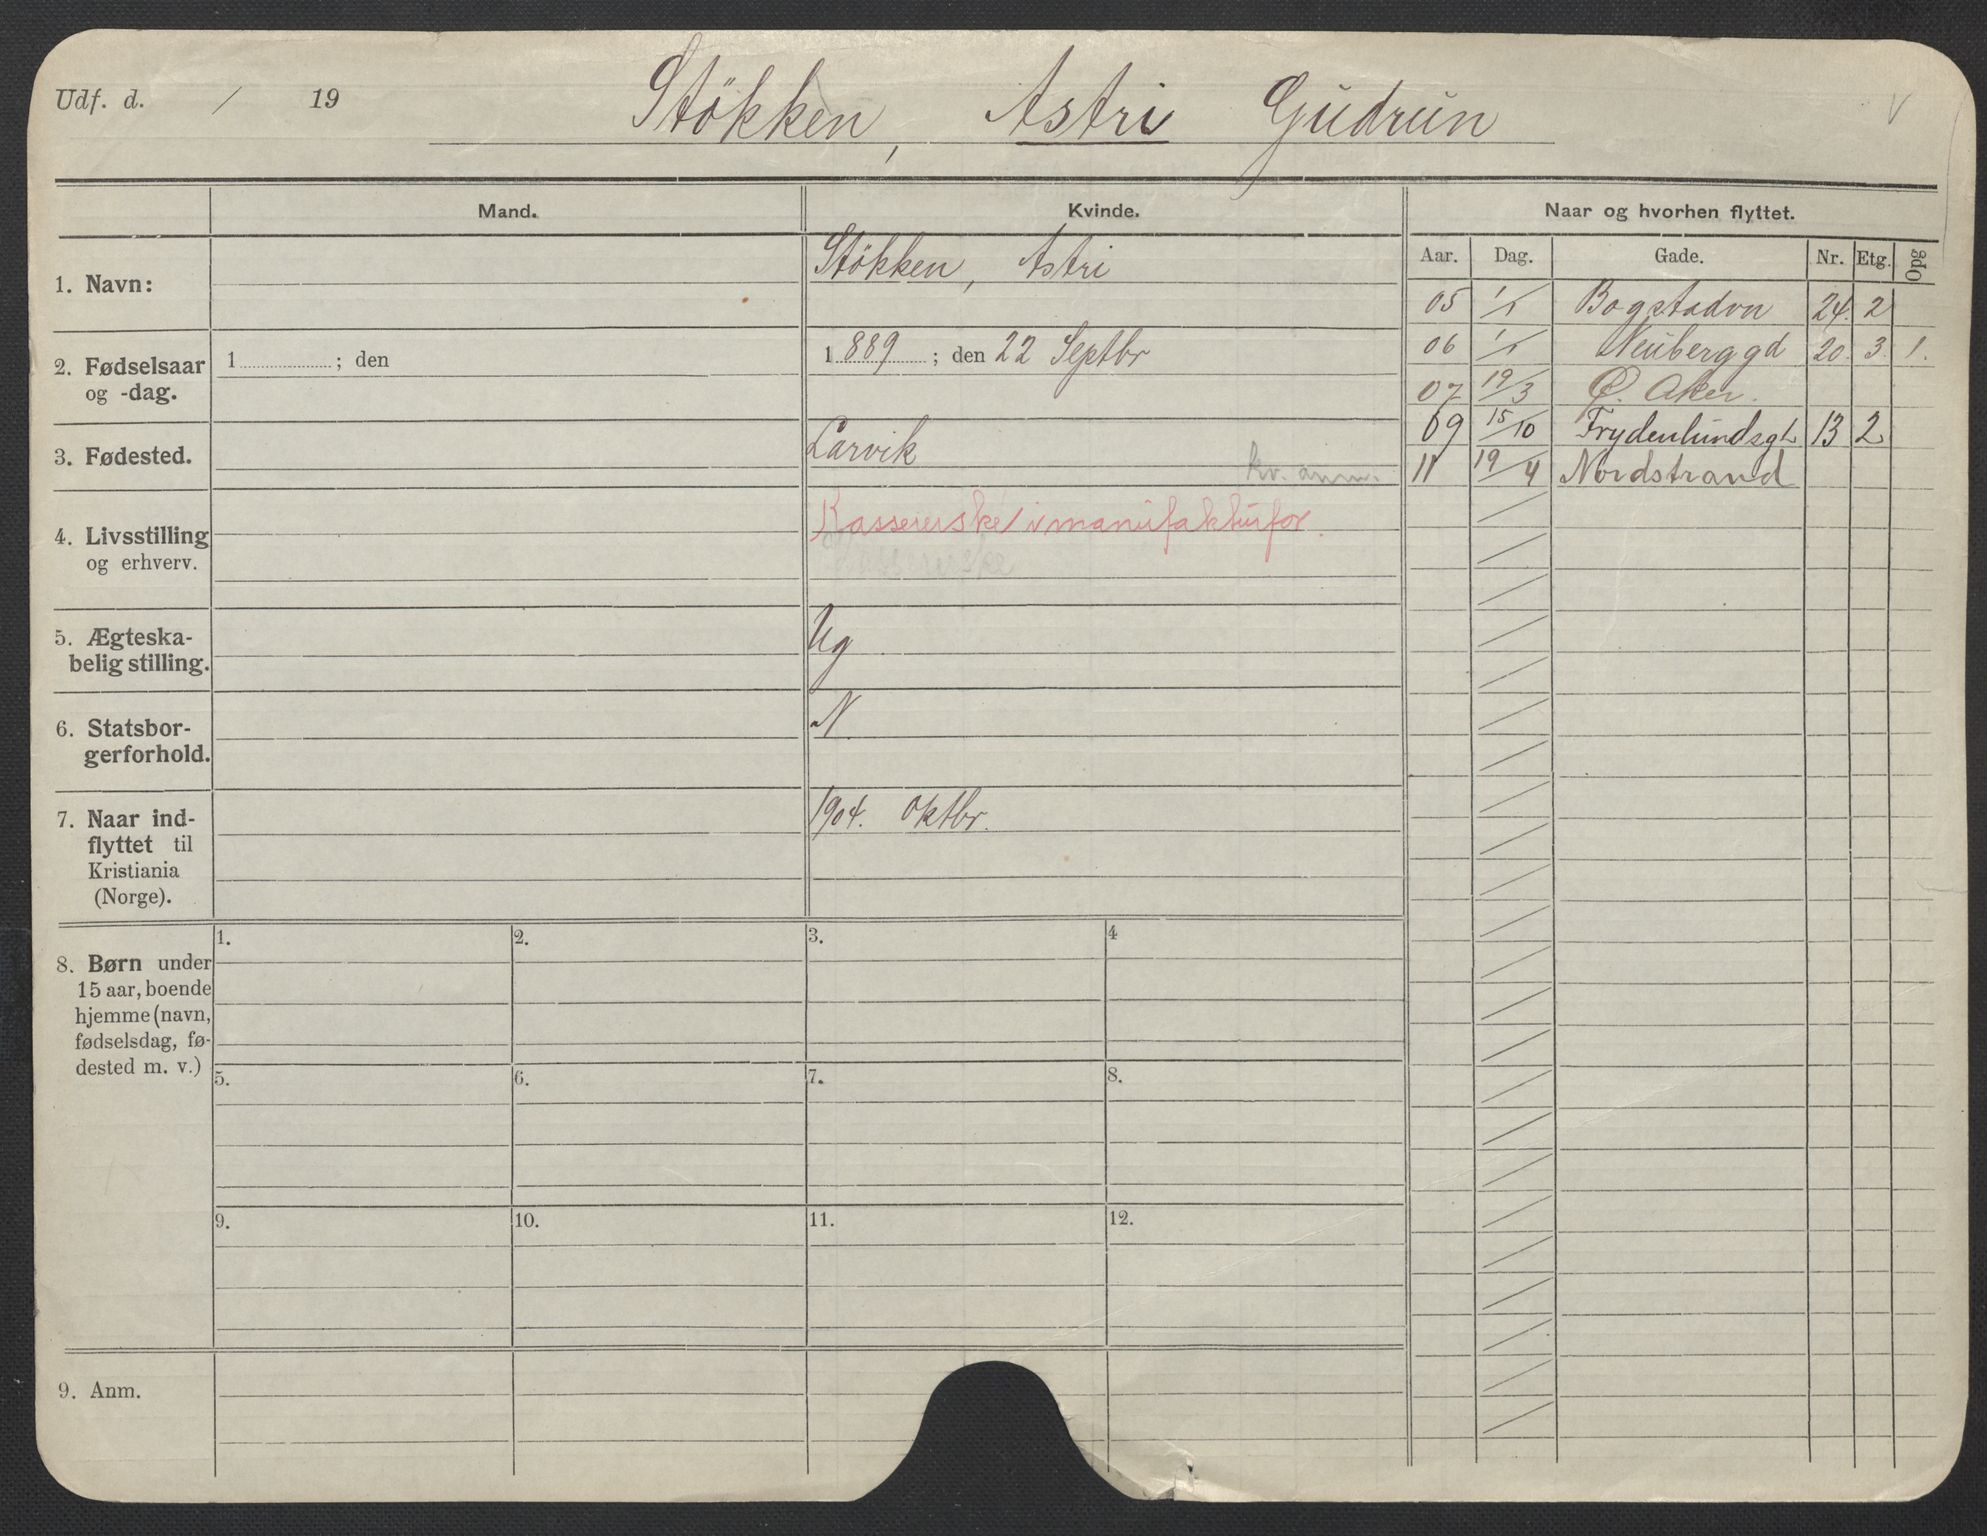 Udf. d. / 19
Stökken, Astri Gudrun
V
Mand.
Kvinde.
Naar og hvorhen flyttet.
Aar. Dag. Gade. Nr. Etg. Opg
1. Navn:
Stökken, Astri
2. Fødselsaar og -dag.
1 ; den
1 889 ; den 22 Septbr
3. Fødested.
Larvik
kv. anm.
4. Livsstilling og erhverv.
Kassererske i manufakturfor.
5. Ægteska-
belig stilling.
Ug
6. Statsbor-
gerforhold.
N.
7. Naar ind-
flyttet til
Kristiania
(Norge).
1904. Oktbr.
05 1/1 Bogstadvn 24. 2
06 1/1 Neuberggd 20. 3. 1.
07 19/3 Ø. Aker.
09 15/10 Frydenlundsgt 13 2
11 19/4 Nordstrand
8. Børn under
15 aar, boende
hjemme (navn,
fødselsdag, fø-
dested m. v.)
1. 2. 3. 4
5. 6. 7. 8.
9. 10. 11. 12.
9. Anm.